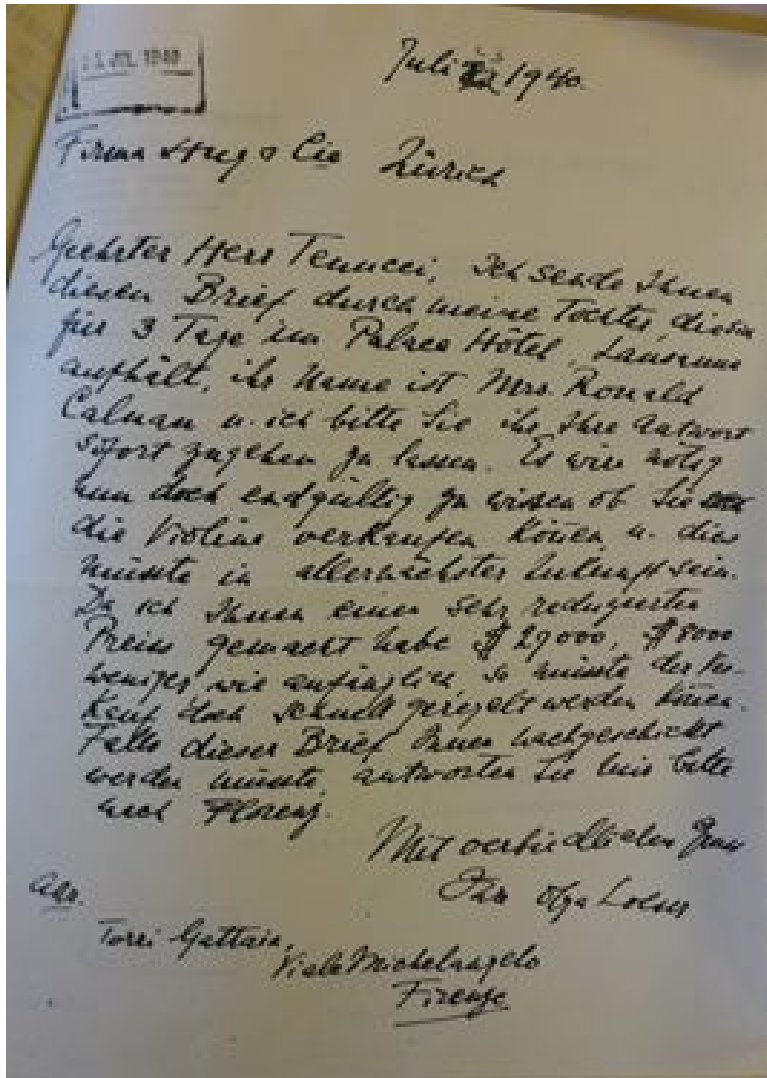 JUL 1940
Juli 1940.
Firma Hug & Cie Zürich
Geehrter Herr Tenucci, Ich sende Ihnen
diesen Brief durch meine Tochter, die sich
für 3 Tage im Palace Hôtel, Lausanne
aufhält, ihr Name ist Mrs. Ronald
Calman u. ich bitte Sie ihr Ihre Antwort
sofort zugehen zu lassen. Es wäre nötig
nun doch endgültig zu wissen ob Sie
die Violine verkaufen können u. dies
müsste in allernächster Zukunft sein.
Da ich Ihnen einen sehr reduzierten
Preis gemacht habe $ 29000, $ 8000
weniger wie anfänglich so müsste der Ver-
kauf doch schnell geregelt werden können.
Falls dieser Brief Ihnen nachgeschickt
werden müsste, antworten Sie mir bitte
nach Florenz.
Mit verbindlichem Gruss
Frau Olga Loeser
Adr.
Torri Gattaia,
Viale Michelangelo
Firenze